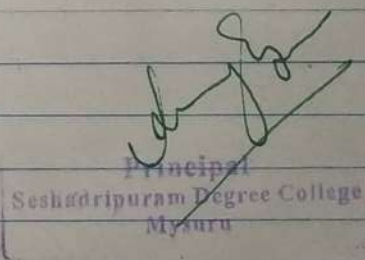 Principal
Seshadripuram Degree College
Mysuru